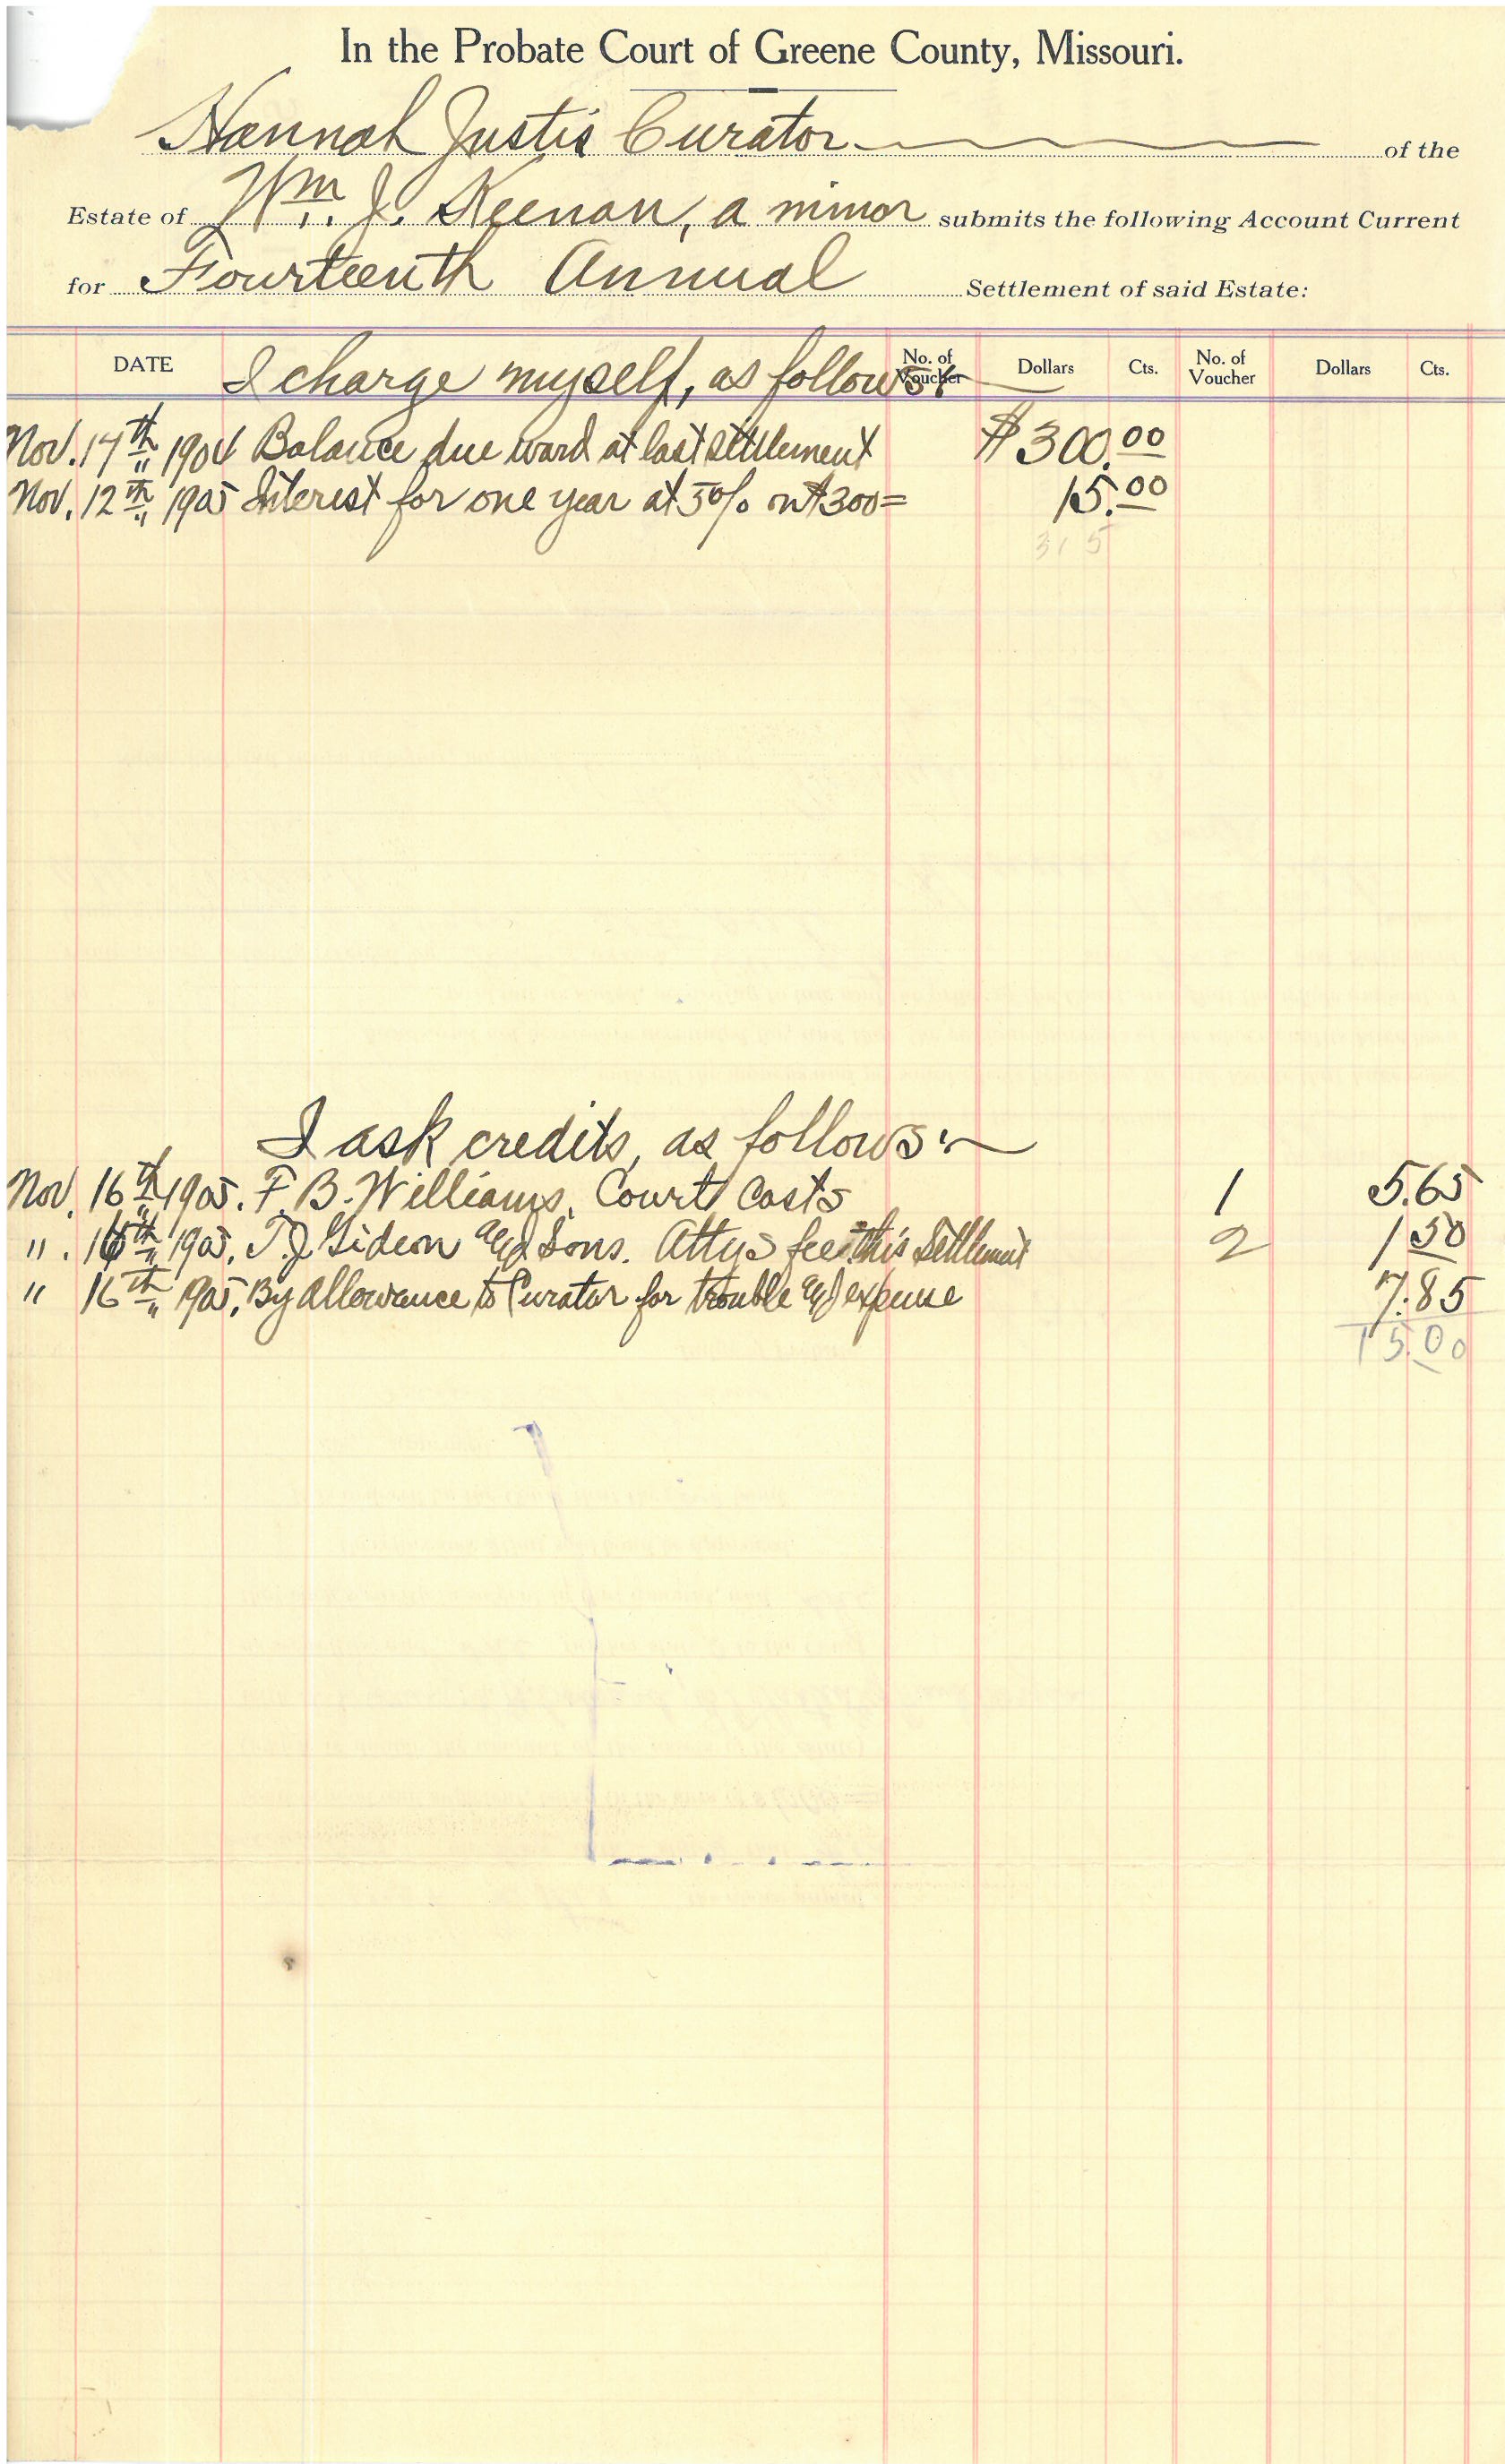 In the Probate Court of Greene County, Missouri.
Hannah Justis Curator of the
Estate of Wm. J. Keenan, a minor submits the following Account Current
for Fourteenth Annual Settlement of said Estate:
DATE I charge myself, as follows: No. of Voucher Dollars Cts. No. of Voucher Dollars Cts.
Nov. 14th 1904 Balance due ward at last settlement $300.00
Nov. 12th 1905 Interest for one year at 5% on $300= 15.00
315
I ask credits, as follows:
Nov. 16th 1905. F. B. Williams, Court Costs 1 5.65
" . 16th 1905, T. J. Gideon and Sons. Attys fee this Settlement 2 1 50
" 16th 1905, By Allowance to Curator for trouble and expense 7.85
15.00